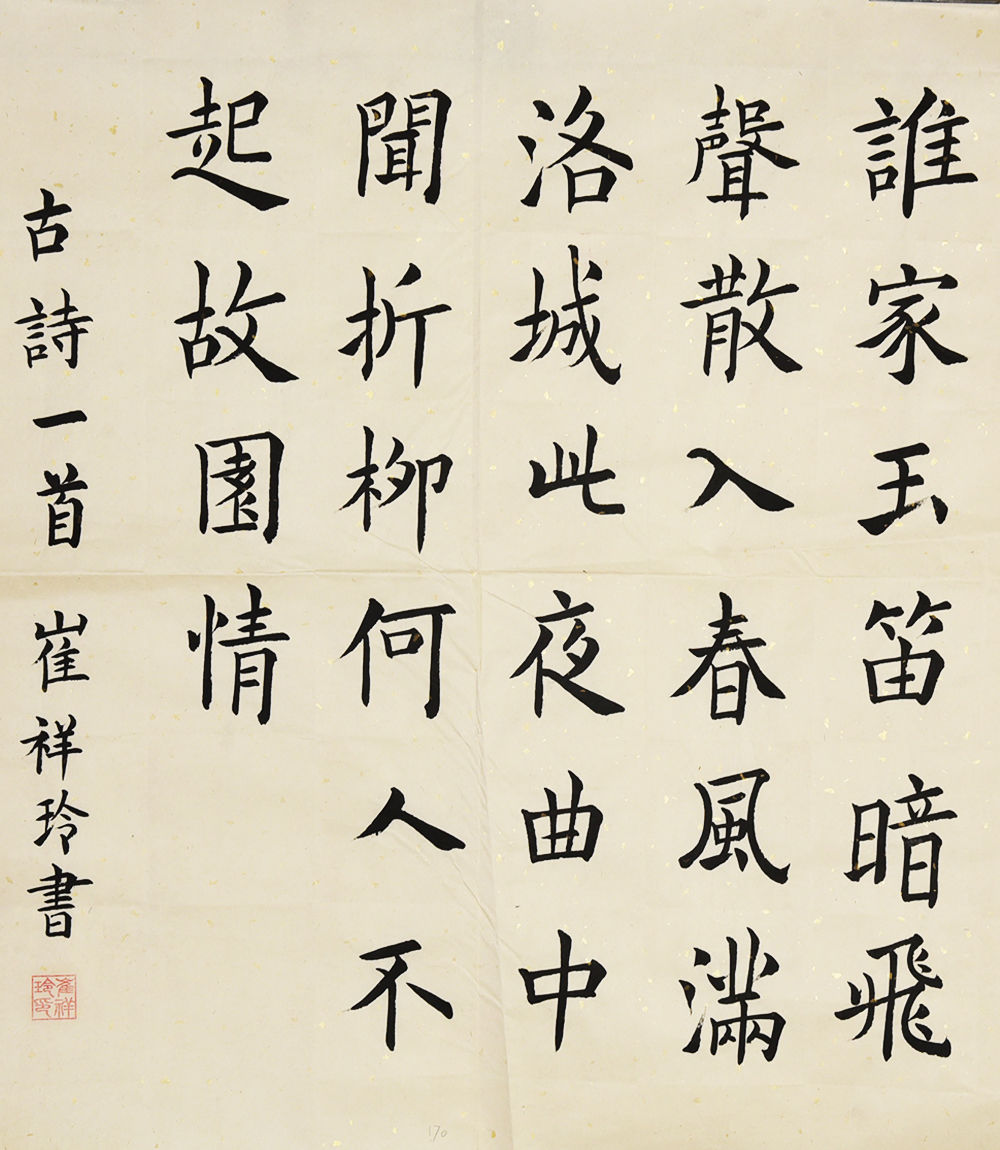 誰家玉笛暗飛
聲散入春風滿
洛城此夜曲中
聞折柳何人不
起故園情
古詩一首 崔祥玲書
崔祥玲印
170